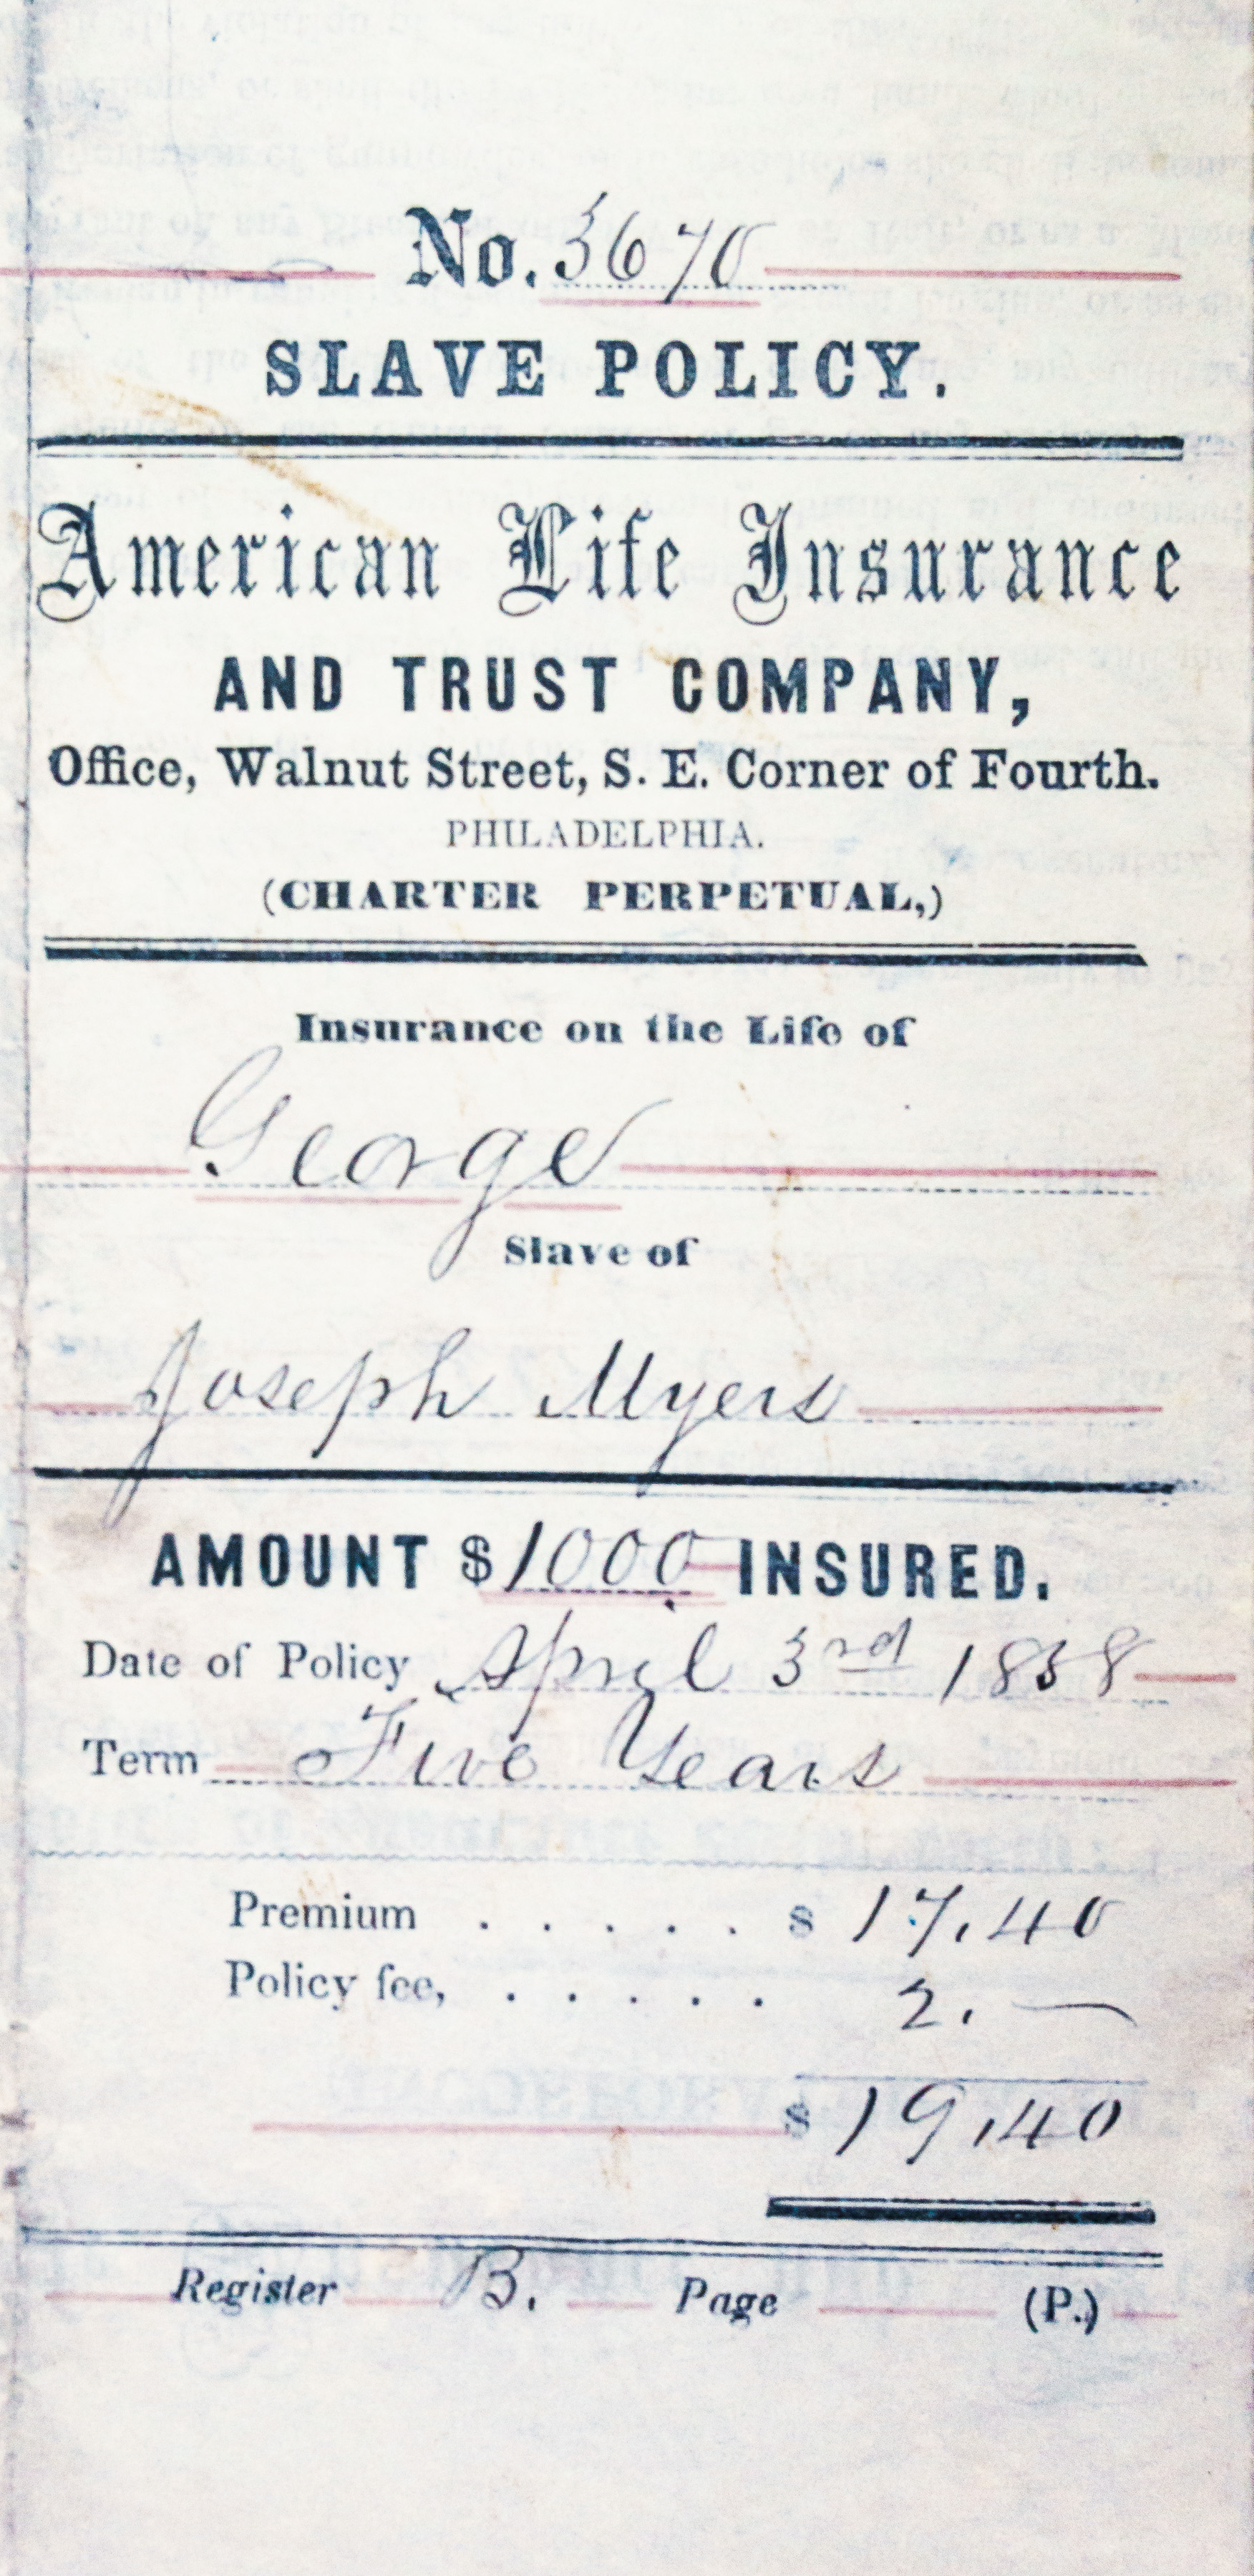 No. 3670
SLAVE POLICY.
American Life Insurance
AND TRUST COMPANY,
Office, Walnut Street, S. E. Corner of Fourth.
PHILADELPHIA.
(CHARTER PERPETUAL,)
Insurance on the Life of
George
Slave of
Joseph Myers
AMOUNT $1000 INSURED.
Date of Policy April 3rd 1858
Term Five Years
Premium . . . . . $ 17.40
Policy fee, . . . . . 2. —
$ 19.40
Register B. Page (P.)